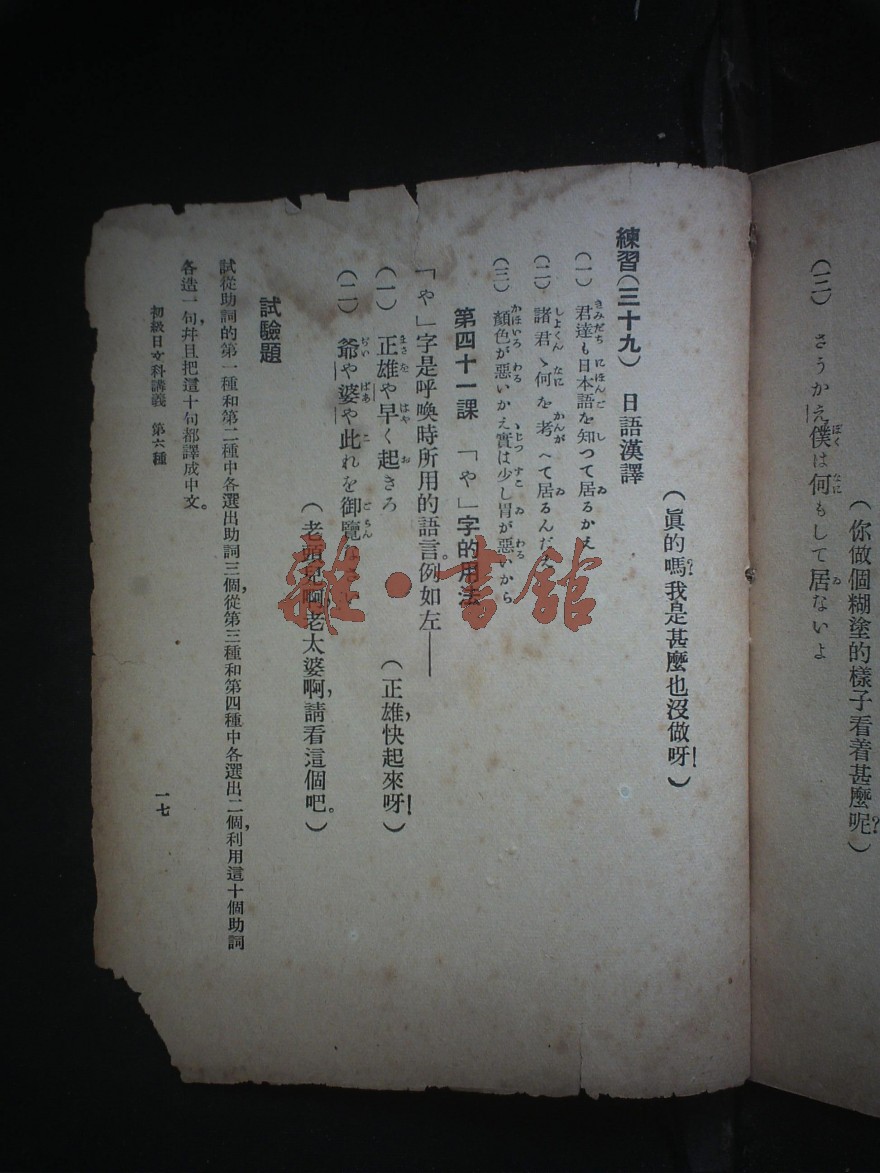 (你做個糊塗的樣子看着甚麼呢?)
(三) さうかえ僕は何もして居ないよ
(眞的嗎?我是甚麼也沒做呀!)
練習(三十九) 日語漢譯
(一) 君達も日本語を知つて居るかえ
(二) 諸君ゝ何を考へて居るんだ
(三) 顏色が惡いかえ實は少し胃が惡いから
第四十一課 「や」字的用法
「や」字是呼喚時所用的語言。例如左——
(一) 正雄や早く起きろ
(正雄,快起來呀!)
(二) 爺や婆や此れを御覽
(老頭兒啊老太婆啊,請看這個吧。)
試驗題
試從助詞的第一種和第二種中各選出助詞三個,從第三種和第四種中各選出二個,利用這十個助詞
各造一句,幷且把這十句都譯成中文。
初級日文科講義 第六種
一七
雜·書館